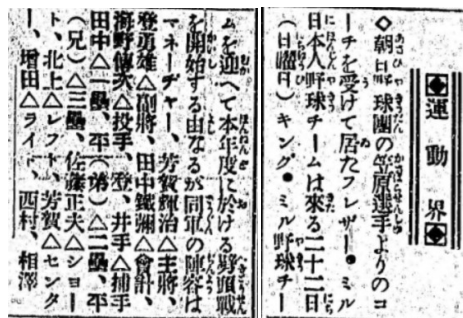 運動界
◇朝日野球團の笠原選手よりのコ
ーチを受けて居たフレザー●ミル
日本人野球チームは來る二十二日
(日曜日)キング●ミル野球チー
ムを迎へて本年度に於ける劈頭戰
を開始する由なるが同軍の陣容は
マネーヂャー、芳賀輝治△主將、
登勇雄△副將、田中鐵彌△會計、
海野傳次△投手、登、井手△捕手
田中△一壘、平(弟)△二壘、平
(兄)△三壘、佐藤正夫△ショー
ト、北上△レフト、芳賀△センタ
ー、增田△ライト、西村、相澤